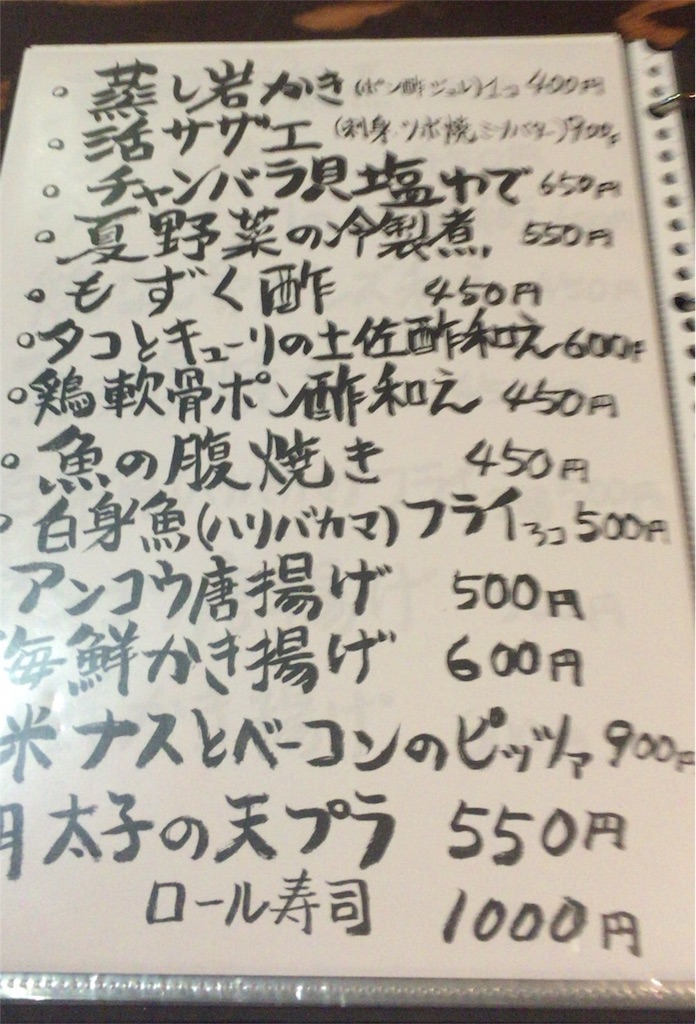 。蒸し岩かき(ポン酢ジュレ)1コ 400円
。活サザエ(刺身 ツボ焼 ミソバター)900円
。チャンバラ貝塩ゆで 650円
。夏野菜の冷製煮 550円
。もずく酢 450円
。タコとキューリの土佐酢和え 600円
。鶏軟骨ポン酢和え 450円
。魚の腹焼き 450円
。白身魚(ハリバカマ)フライ 500円
アンコウ唐揚げ 500円
海鮮かき揚げ 600円
米ナスとベーコンのピッツァ 900円
明太子の天プラ 550円
ロール寿司 1000円